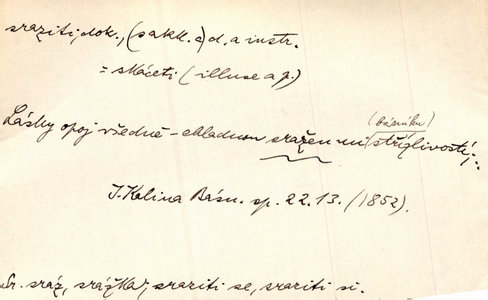 sraziti, dok., (s akk. a) d. a instr.
= skáceti (illuse a j.)
(básníku)
Lásky opoj všedně-chladnou sražen mi střízlivostí;
J. Kalina Básn. sp. 22.13. (1852).
Sr. sráz, srážka, sraziti se, sraziti si.